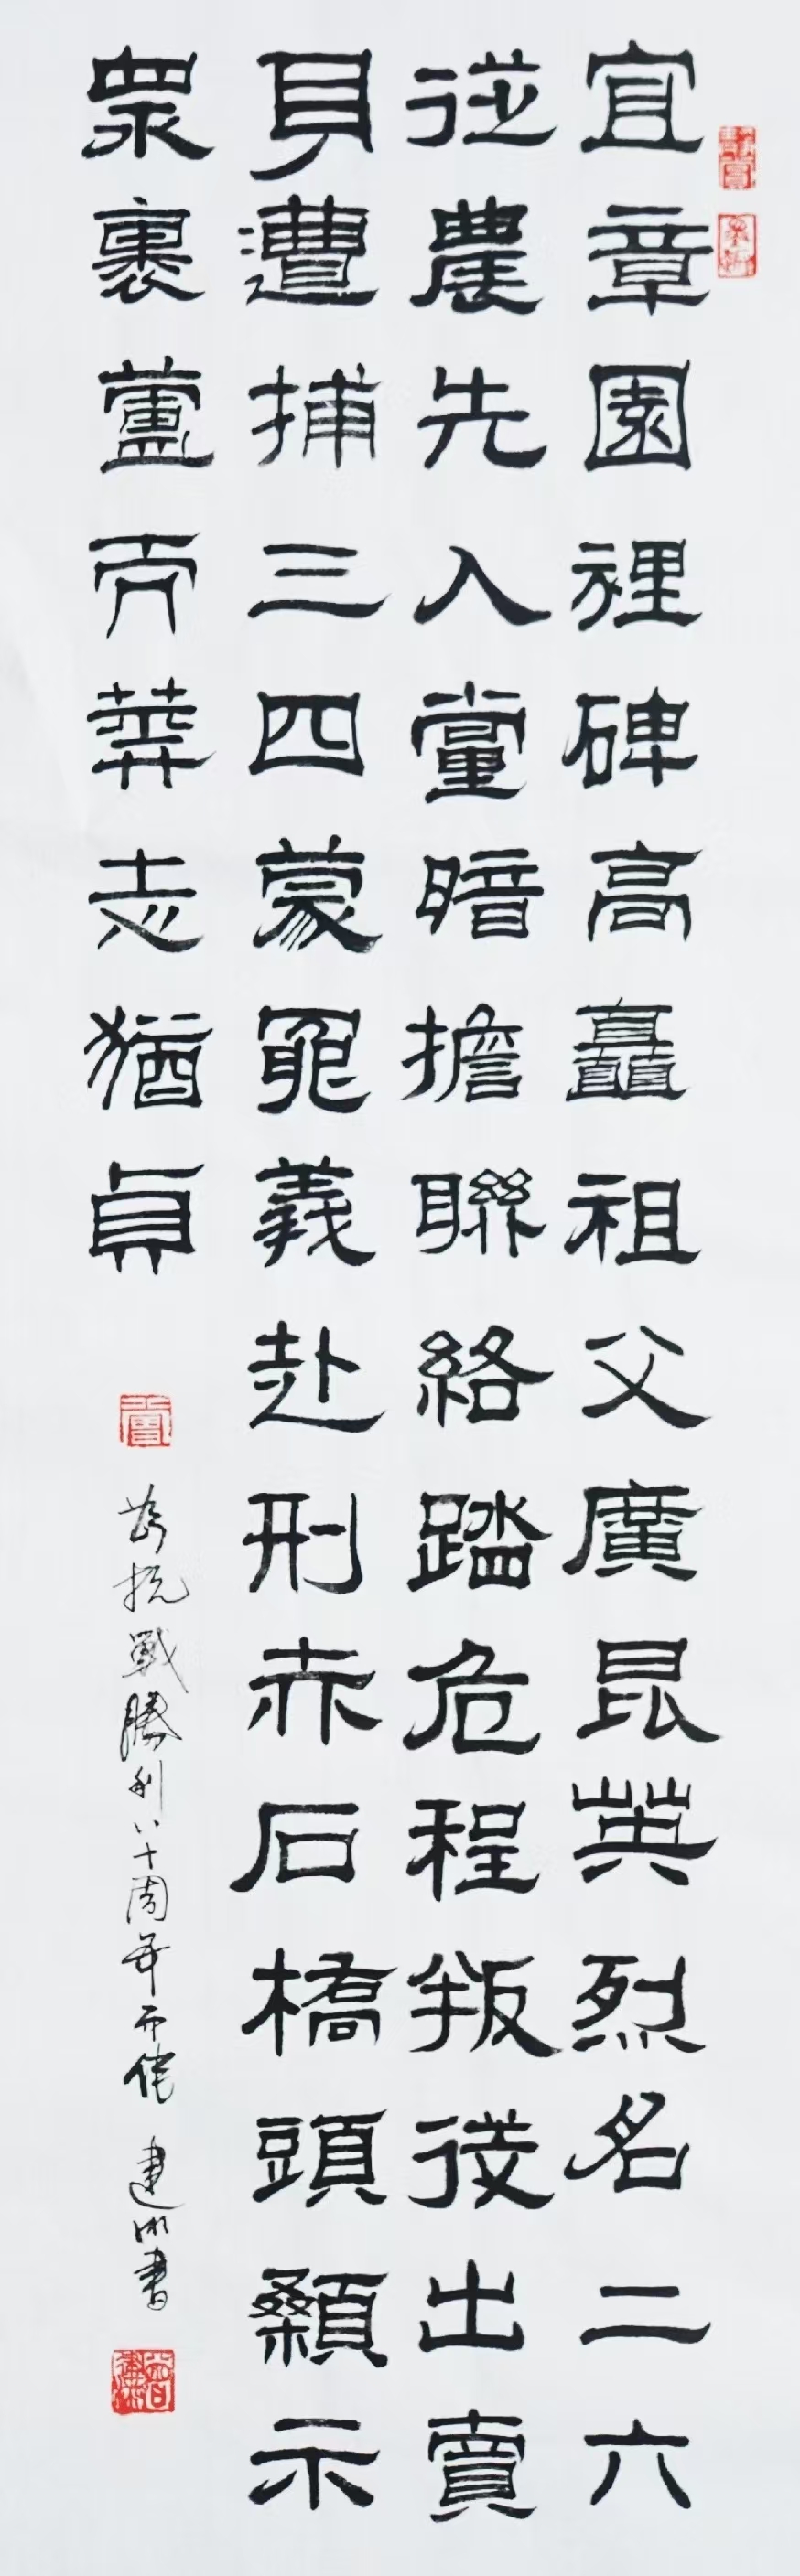 宜章園裡碑高矗祖父廣昆英烈名二六
從農先入黨暗擔聯絡踏危程叛徒出賣
身遭捕三四蒙冤義赴刑赤石橋頭顙示
眾裹蘆席葬志猶貞
抗戰勝利八十周年而作 建書